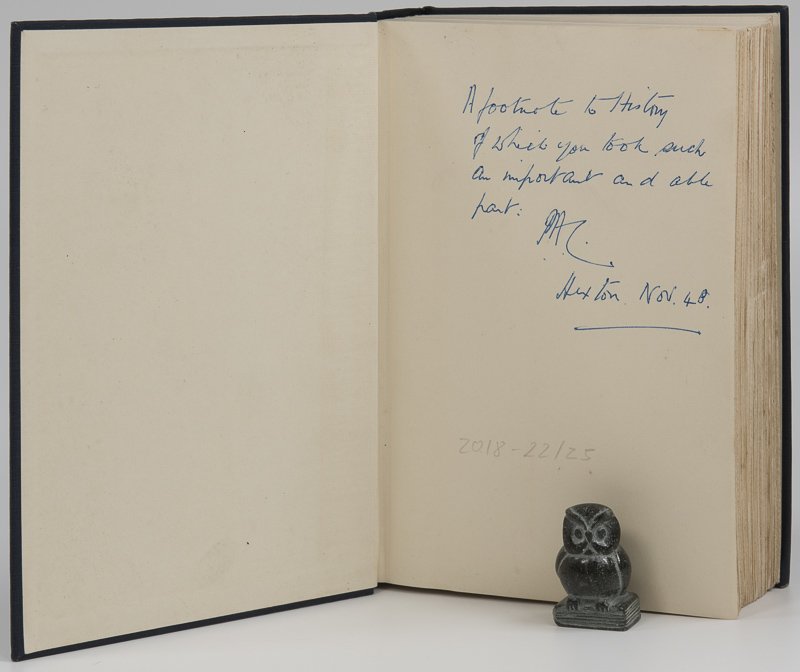 A footnote to History
of which you took such
an important and able
part:
Hexton Nov. 48.
2018-22/25